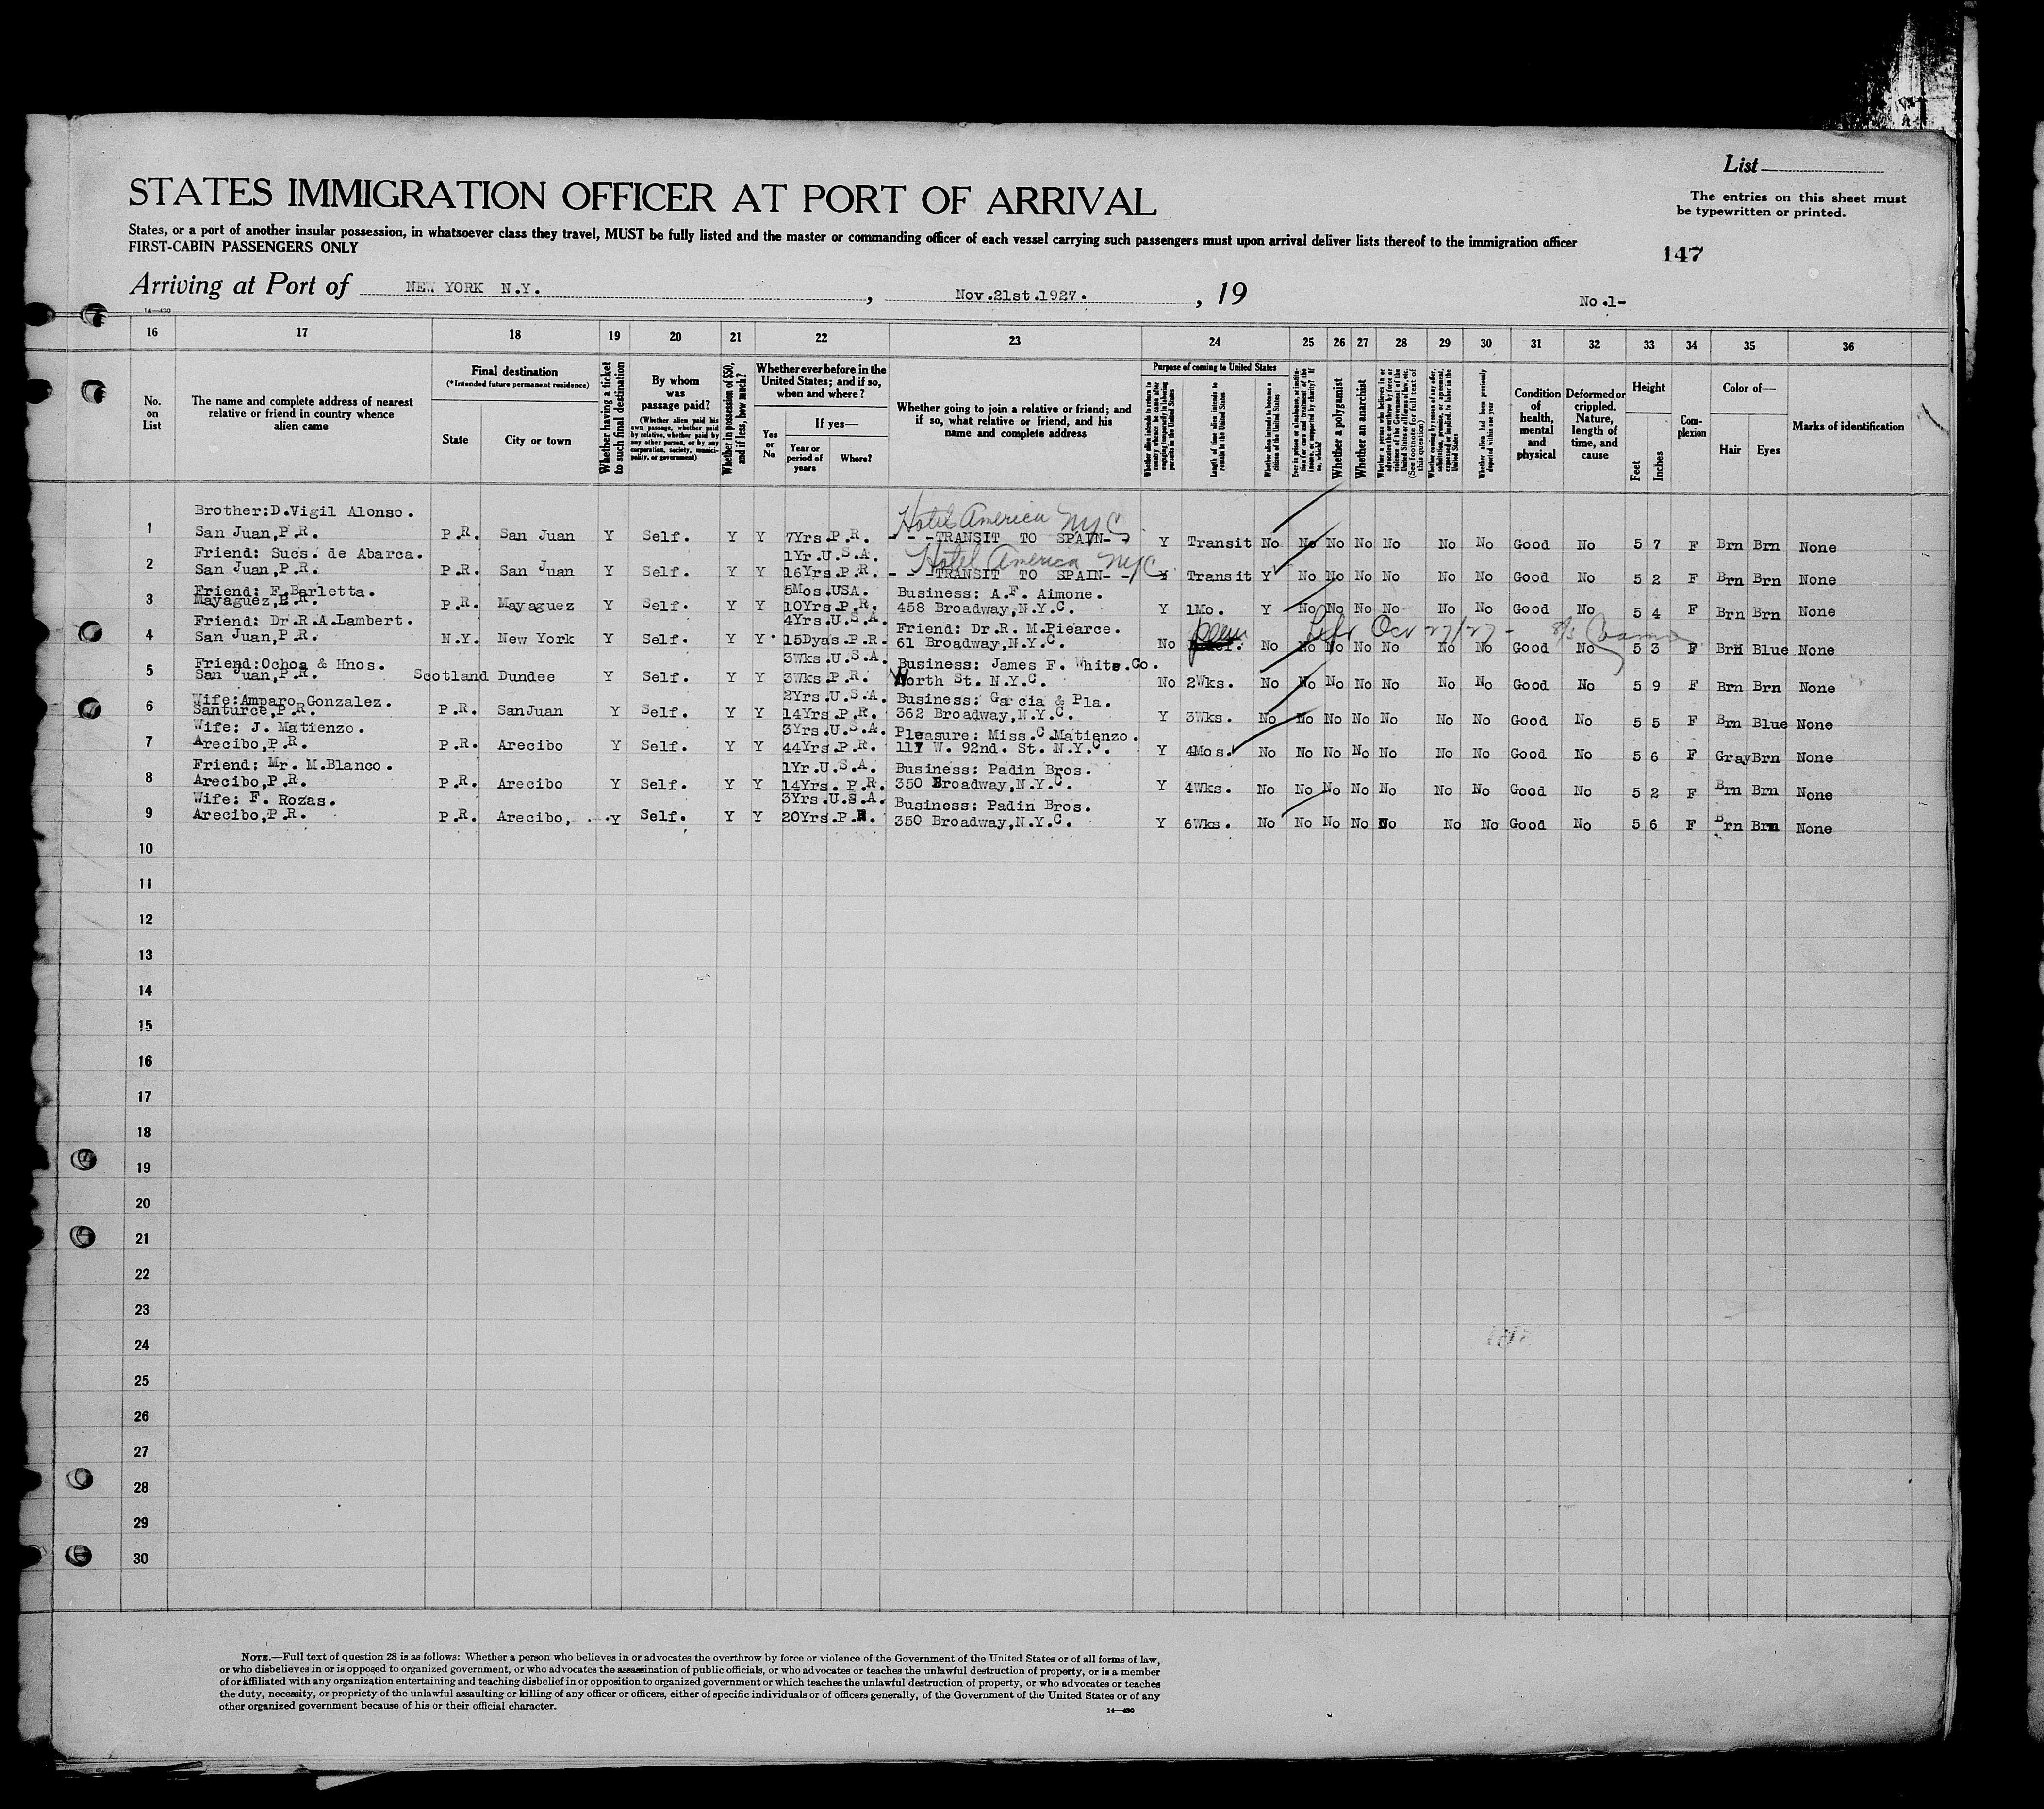 List
STATES IMMIGRATION OFFICER AT PORT OF ARRIVAL
The entries on this sheet must
be typewritten or printed.
States, or a port of another insular possession, in whatsoever class they travel, MUST be fully listed and the master or commanding officer of each vessel carrying such passengers must upon arrival deliver lists thereof to the immigration officer
FIRST-CABIN PASSENGERS ONLY
147
Arriving at Port of NEW YORK N.Y. , Nov.21st.1927. , 19
No.1-
14—430
16 17 18 19 20 21 22 23 24 25 26 27 28 29 30 31 32 33 34 35 36
No. on List
The name and complete address of nearest relative or friend in country whence alien came
Final destination
(*Intended future permanent residence)
State
City or town
Whether having a ticket to such final destination
By whom was passage paid?
(Whether alien paid his own passage, whether paid by relative, whether paid by any other person, or by any corporation, society, municipality, or government)
Whether in possession of $50, and if less, how much?
Whether ever before in the United States; and if so, when and where?
Yes or No
If yes—
Year or period of years
Where?
Whether going to join a relative or friend; and if so, what relative or friend, and his name and complete address
Purpose of coming to United States
Whether alien intends to return to country whence he came after engaging temporarily in laboring pursuits in the United States
Length of time alien intends to remain in the United States
Whether alien intends to become a citizen of the United States
Ever in prison or almshouse, or institution for care and treatment of the insane, or supported by charity? If so, which?
Whether a polygamist
Whether an anarchist
Whether a person who believes in or advocates the overthrow by force or violence of the Government of the United States or all forms of law, etc. (See footnote for full text of this question)
Whether coming by reason of any offer, solicitation, promise, or agreement, expressed or implied, to labor in the United States
Whether alien had been previously deported within one year
Condition of health, mental and physical
Deformed or crippled. Nature, length of time, and cause
Height
Feet
Inches
Complexion
Color of—
Hair
Eyes
Marks of identification
Brother:D.Vigil Alonso. Hotel America NYC
1 San Juan,P.R. P.R. San Juan Y Self. Y Y 7Yrs.P.R. - - -TRANSIT TO SPAIN- - Y Transit No No No No No No No Good No 5 7 F Brn Brn None
Friend: Sucs. de Abarca. 1Yr.U.S.A. Hotel America NYC
2 San Juan,P.R. P.R. San Juan Y Self. Y Y 16Yrs.P.R. - - -TRANSIT TO SPAIN- - Y Transit Y No No No No No No Good No 5 2 F Brn Brn None
Friend: F.Barletta. 5Mos.USA. Business: A.F. Aimone.
3 Mayaguez,P.R. P.R. Mayaguez Y Self. Y Y 10Yrs.P.R. 458 Broadway,N.Y.C. Y 1Mo. Y No No No No No No Good No 5 4 F Brn Brn None
Friend: Dr.R.A.Lambert. 4Yrs.U.S.A. Friend: Dr.R. M.Piearce. Left Oct 27/27 -
4 San Juan,P.R. N.Y. New York Y Self. Y Y 15Dyas.P.R. 61 Broadway,N.Y.C. No No No No No No No No Good No 5 3 F Brn Blue None
Friend:Ochoa & Hnos. 3Wks.U.S.A. Business: James F. White.Co.
5 San Juan,P.R. Scotland Dundee Y Self. Y Y 3Wks.P.R. Worth St. N.Y.C. No 2Wks. No No No No No No No Good No 5 9 F Brn Brn None
Wife:Amparo Gonzalez. 2Yrs.U.S.A. Business: Garcia & Pla.
6 Santurce,P.R. P.R. SanJuan Y Self. Y Y 14Yrs.P.R. 362 Broadway,N.Y.C. Y 3Wks. No No No No No No No Good No 5 5 F Brn Blue None
Wife: J. Matienzo. 3Yrs.U.S.A. Pleasure: Miss.C.Matienzo.
7 Arecibo,P.R. P.R. Arecibo Y Self. Y Y 44Yrs.P.R. 117 W. 92nd. St. N.Y.C. Y 4Mos. No No No No No No No Good No 5 6 F Gray Brn None
Friend: Mr. M.Blanco. 1Yr.U.S.A. Business: Padin Bros.
8 Arecibo,P.R. P.R. Arecibo Y Self. Y Y 14Yrs. P.R. 350 Broadway,N.Y.C. Y 4Wks. No No No No No No No Good No 5 2 F Brn Brn None
Wife: F. Rozas. 3Yrs.U.S.A. Business: Padin Bros.
9 Arecibo,P.R. P.R. Arecibo, Y Self. Y Y 20Yrs.P.R. 350 Broadway,N.Y.C. Y 6Wks. No No No No No No No Good No 5 6 F Brn Brn None
10
11
12
13
14
15
16
17
18
19
20
21
22
23
24
25
26
27
28
29
30
NOTE.—Full text of question 28 is as follows: Whether a person who believes in or advocates the overthrow by force or violence of the Government of the United States or of all forms of law,
or who disbelieves in or is opposed to organized government, or who advocates the assassination of public officials, or who advocates or teaches the unlawful destruction of property, or is a member
of or affiliated with any organization entertaining and teaching disbelief in or opposition to organized government or which teaches the unlawful destruction of property, or who advocates or teaches
the duty, necessity, or propriety of the unlawful assaulting or killing of any officer or officers, either of specific individuals or of officers generally, of the Government of the United States or of any
other organized government because of his or their official character.
14—430